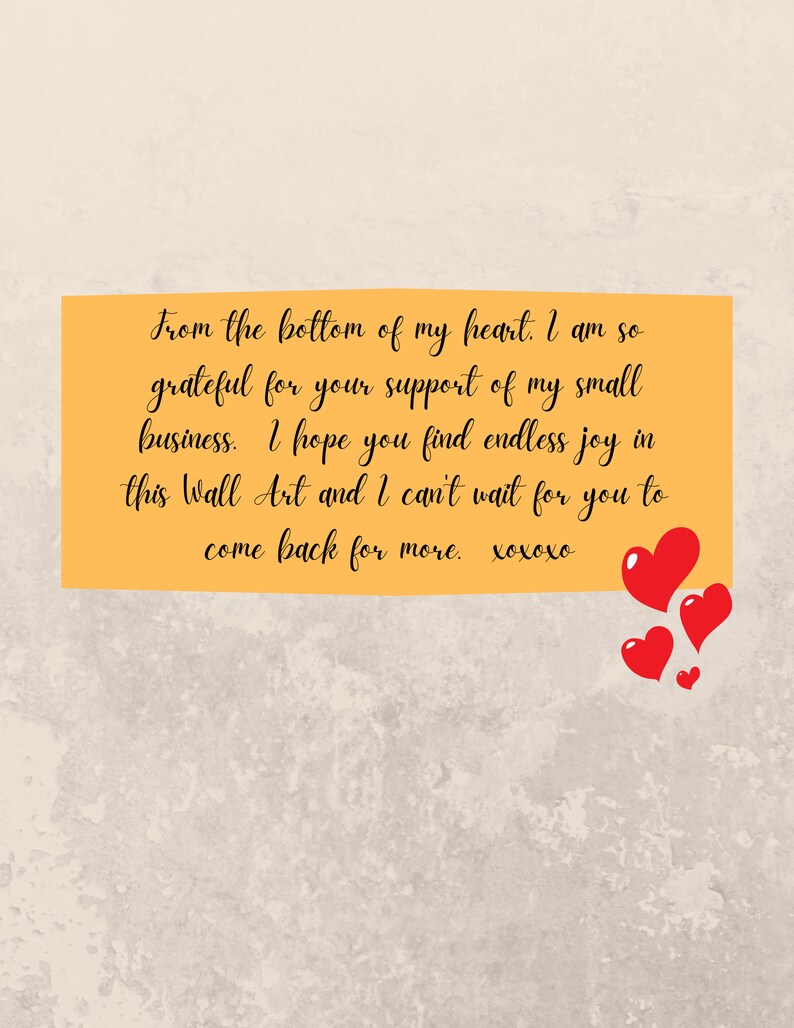 From the bottom of my heart, I am so
grateful for your support of my small
business. I hope you find endless joy in
this Wall Art and I can't wait for you to
come back for more. xoxoxo